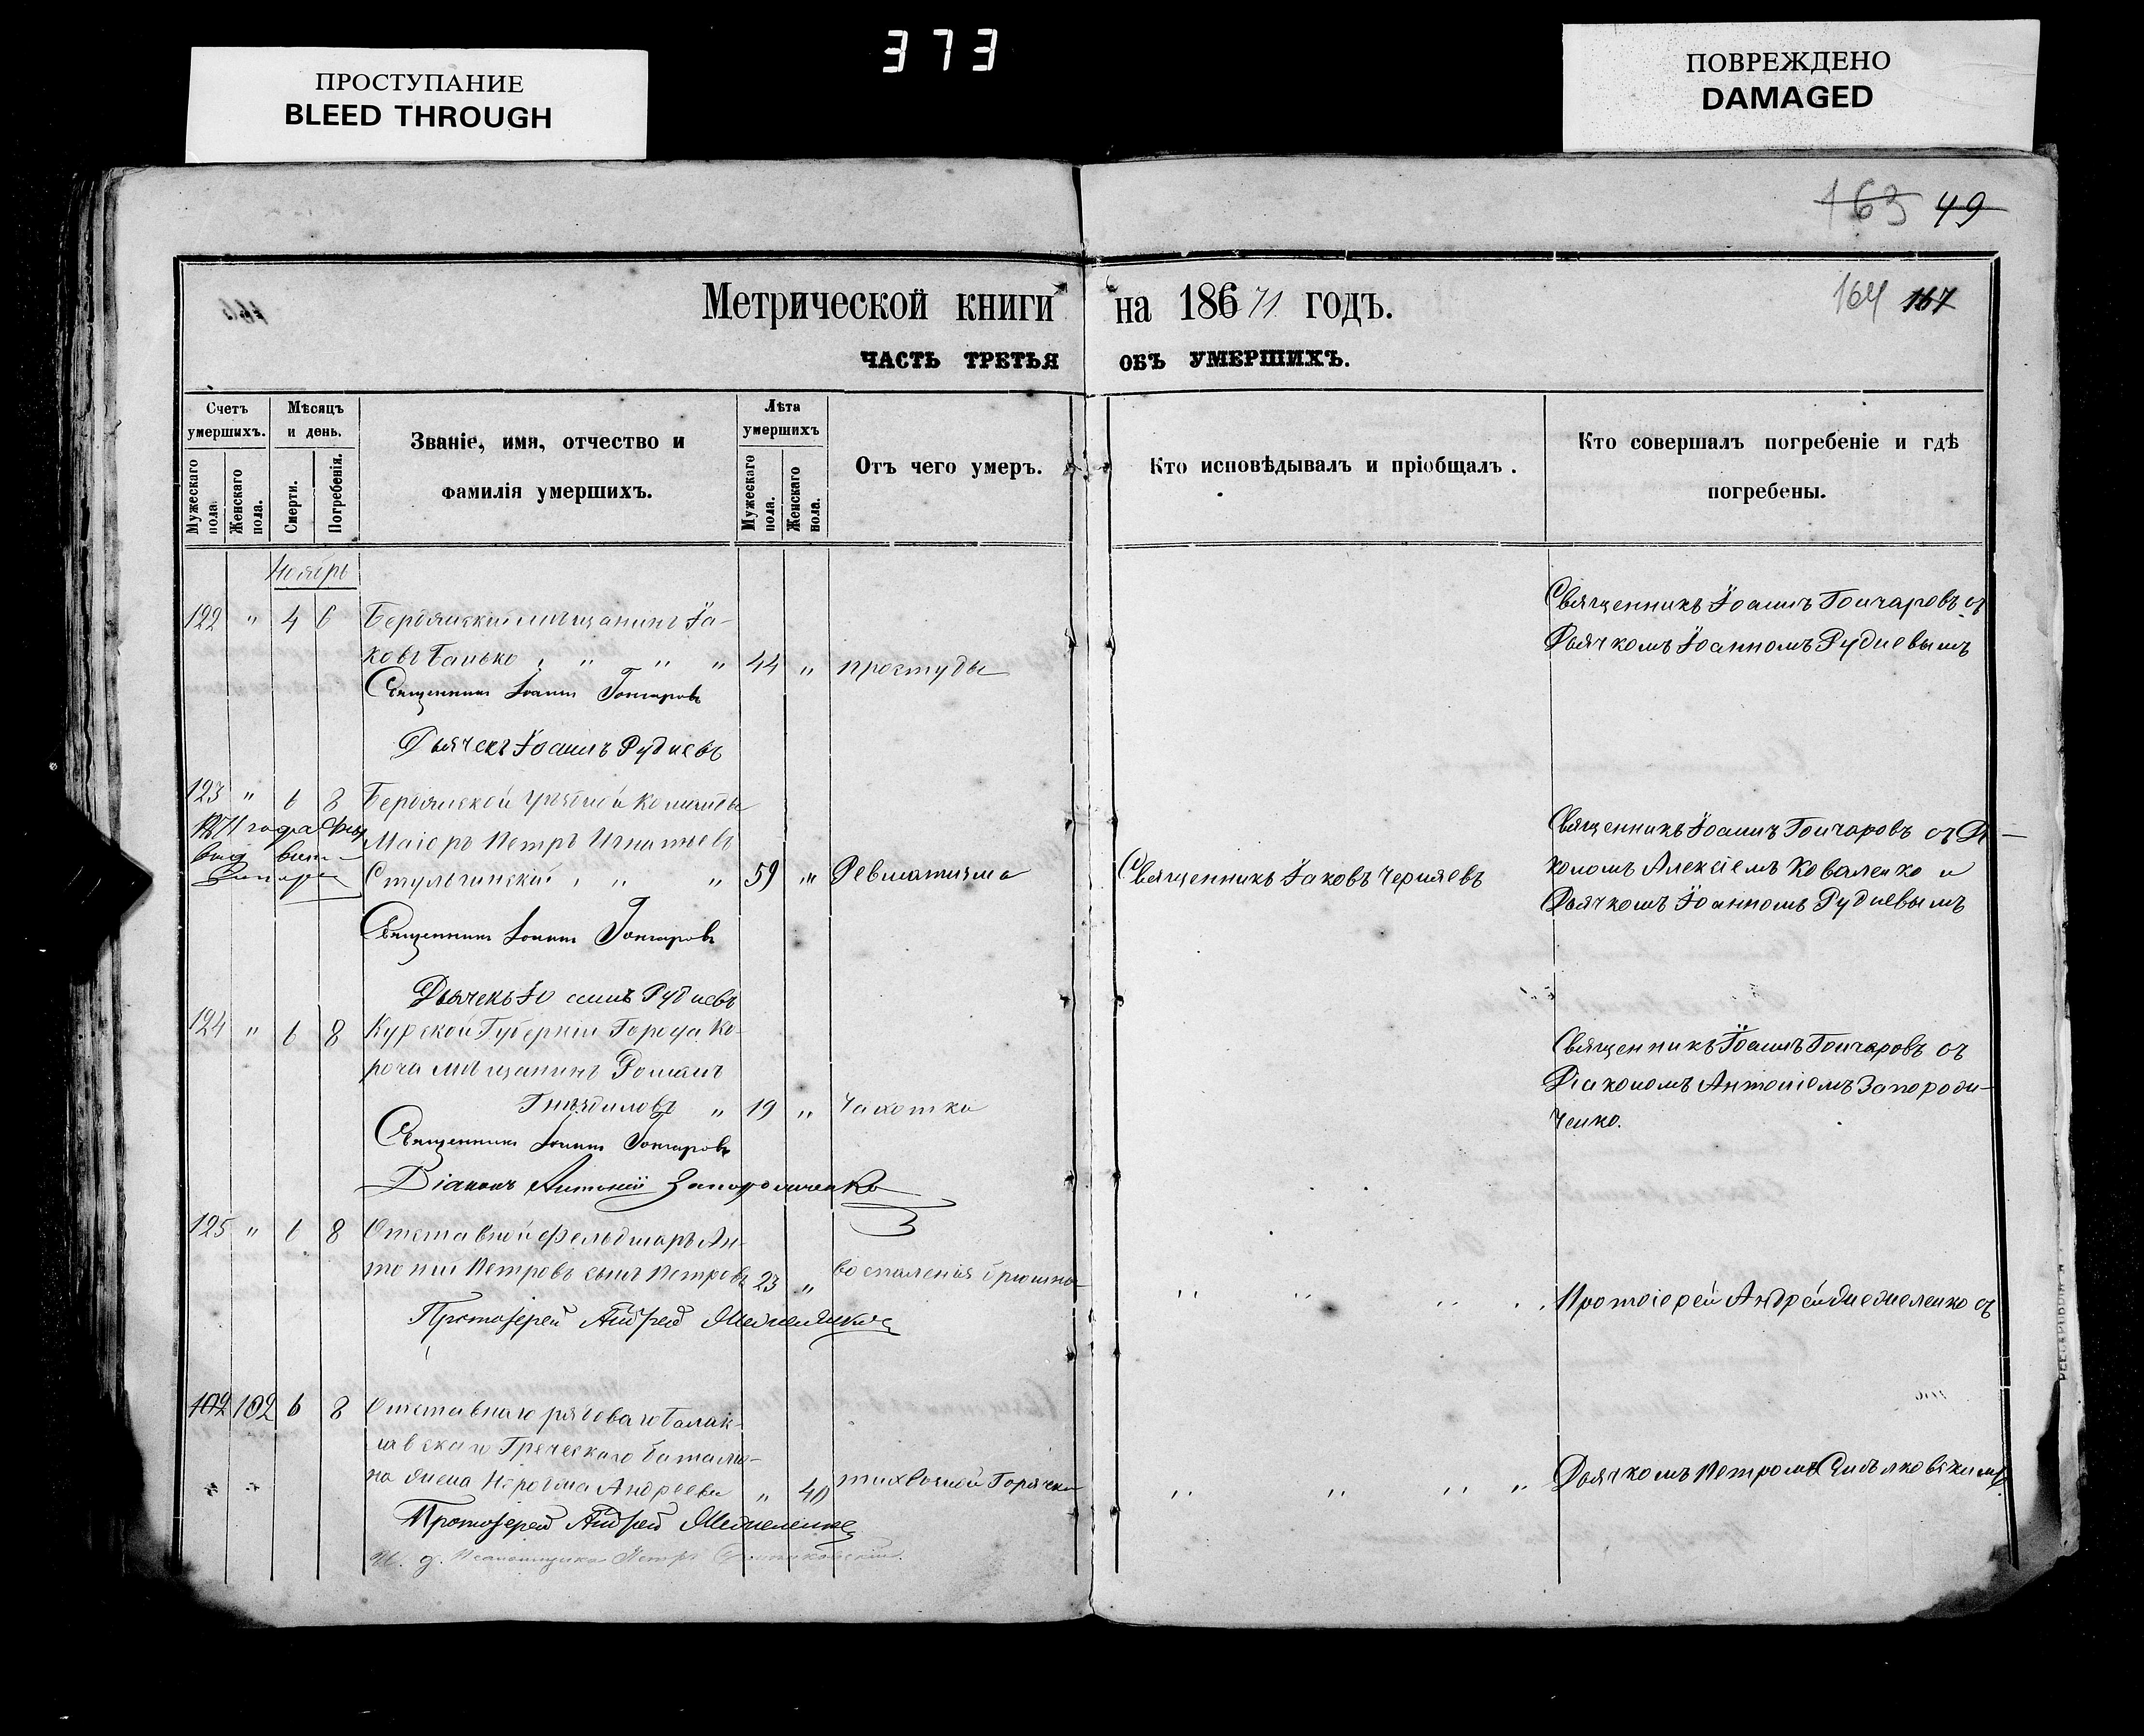 373
ПРОСТУПАНИЕ
BLEED THROUGH
ПОВРЕЖДЕНО
DAMAGED
163 49
164 167
Метрической книги на 18671 годъ.
ЧАСТЬ ТРЕТЬЯ ОБЪ УМЕРШИХЪ.
Счетъ умершихъ.
Мужескаго пола.
Женскаго пола.
Мѣсяцъ и день.
Смерти.
Погребенія.
Званіе, имя, отчество и
фамилія умершихъ.
Лѣта умершихъ
Мужескаго пола.
Женскаго пола.
Отъ чего умеръ.
Кто исповѣдывалъ и пріобщалъ.
Кто совершалъ погребеніе и гдѣ
погребены.
Ноябрь
122 " 4 6 Бердянскій мѣщанинъ Іа-
ковъ Банько " " " 44 " простуды
Священникъ Іоаннъ Гончаровъ
Дьячекъ Іоаннъ Рудневъ
Священникъ Іоаннъ Гончаровъ съ
Дьячкомъ Іоанномъ Рудневымъ
123 " 6 8 Бердянской уѣздной команды
1871 года
Маіоръ Петръ Игнатьевъ
Стульгинскій " " 59 " Ревматизма
Священникъ Іоаннъ Гончаровъ
Дьячекъ Іоаннъ Рудневъ
Священникъ Іаковъ Черняевъ
Священникъ Іоаннъ Гончаровъ съ Діа-
кономъ Алексіемъ Коваленко и
Дьячкомъ Іоанномъ Рудневымъ
124 " 6 8 Курской Губерніи Города Ко-
роча мѣщанинъ Романъ
Гнѣздиловъ " 19 " Чахотки
Священникъ Іоаннъ Гончаровъ
Діаконъ Антоній
Священникъ Іоаннъ Гончаровъ съ
Діакономъ Антоніемъ
ченко.
125 " 6 8 Отставной фельдшеръ Ан-
тоній Петровъ сынъ Петровъ 23 " воспаленія брюшн
Протоіерей Андрей
" " " " Протоіерей Андрей съ
102 102 6 8 Отставнаго рядоваго Балак-
лавскаго Греческаго баталіо-
на жена Андреева " 40 Горячки
Протоіерей Андрей
И. д. Псаломщика Петръ
" " " " Дьячкомъ Петромъ